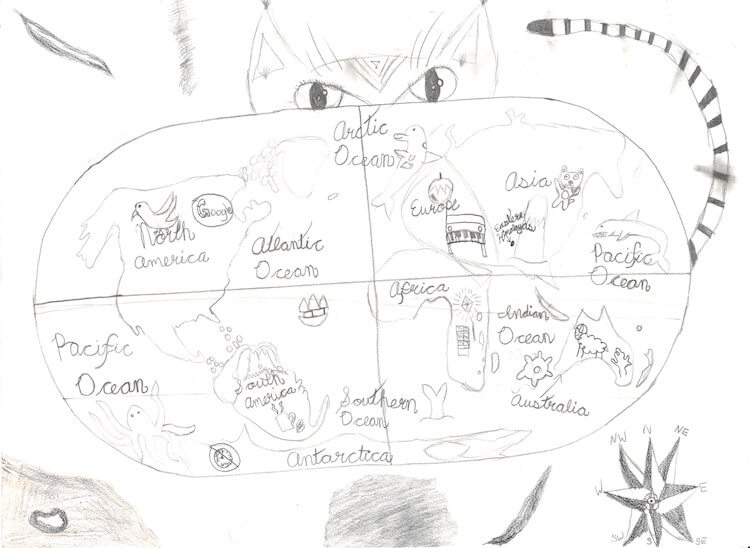 Arctic
Ocean
Asia
Europe
Google
Eastern
North
America
Atlantic
Ocean
Pacific
Ocean
Africa
Indian
Ocean
Pacific
Ocean
South
America
Southern
Ocean
Australia
Antarctica
NW
N
NE
W
E
SW
S
SE